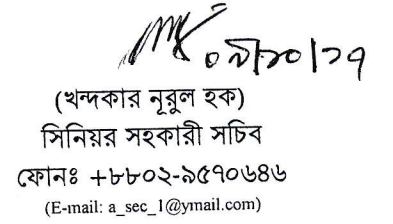 ০৯/১০/১৭
(খন্দকার নূরুল হক)
সিনিয়র সহকারী সচিব
ফোনঃ +৮৮০২-৯৫৭০৬৪৬
(E-mail: a_sec_1@ymail.com)